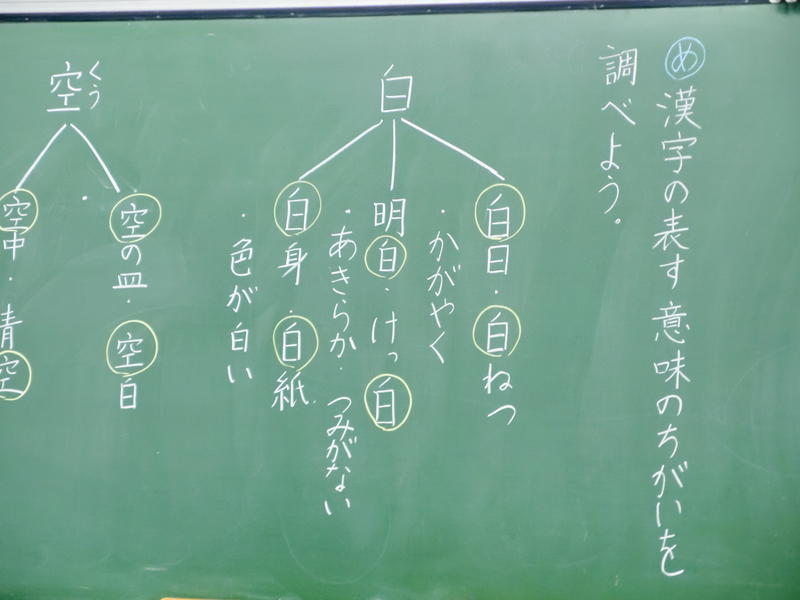 め 漢字の表す意味のちがいを
調べよう。
白
白日・白ねつ
・かがやく
明白・けっ白
・あきらか・つみがない
白身・白紙
・色が白い
空
くう
空の皿・空白
空中・青空